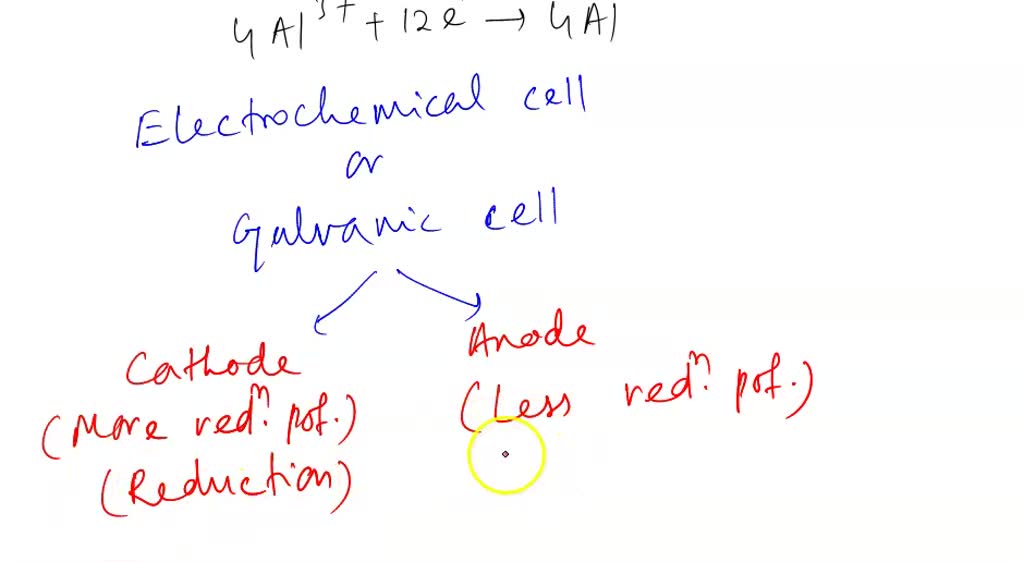 4Al³⁺ + 12e → 4Al
Electrochemical cell
or
Galvanic cell
Cathode
(More redⁿ. pot.)
(Reduction)
Anode
(Less redⁿ. pot.)